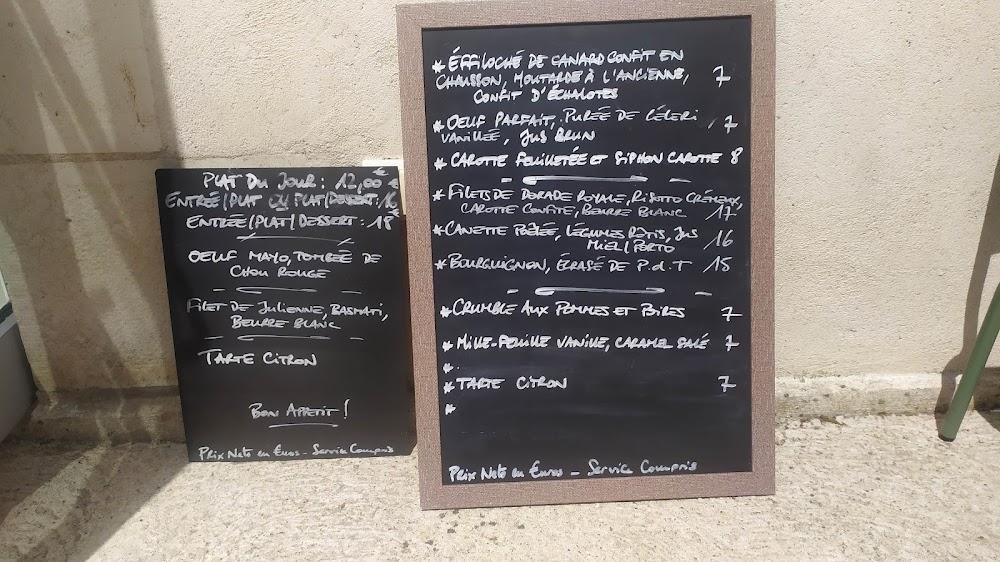 PLAT DU JOUR : 12,00 €
ENTRÉE/PLAT OU PLAT/DESSERT : 16 €
ENTRÉE/PLAT/DESSERT : 18 €
OEUF MAYO, TOMBÉE DE
CHOU ROUGE
FILET DE JULIENNE, BASMATI,
BEURRE BLANC
TARTE CITRON
BON APPETIT !
Prix Nets en Euros - Service Compris
* ÉFFILOCHÉ DE CANARD CONFIT EN
CHAUSSON, MOUTARDE À L'ANCIENNE, 7
CONFIT D'ÉCHALOTES
* OEUF PARFAIT, PURÉE DE CÉLERI, 7
VANILLÉE, JUS BRUN
* CAROTTE FEUILLETÉE ET SIPHON CAROTTE 8
* FILETS DE DORADE ROYALE, RISOTTO CRÉMEUX,
CAROTTE CONFITE, BEURRE BLANC 17
* CANETTE POÊLÉE, LÉGUMES RÔTIS, JUS 16
MIEL/PORTO
* BOURGUIGNON, ÉCRASÉ DE P.d.T 15
* CRUMBLE AUX POMMES ET POIRES 7
* MILLE-FEUILLE VANILLE, CARAMEL SALÉ 7
* TARTE CITRON 7
Prix Nets en Euros - Service Compris